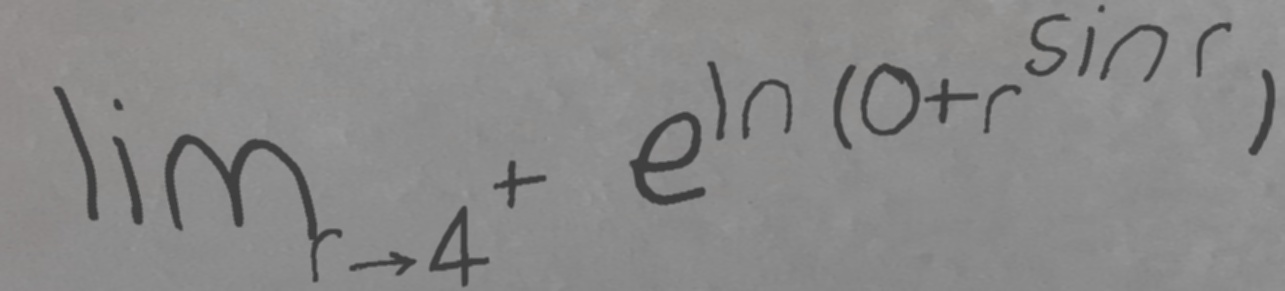 lim_{r→4^+} e^{ln(0+r^{sin r})}